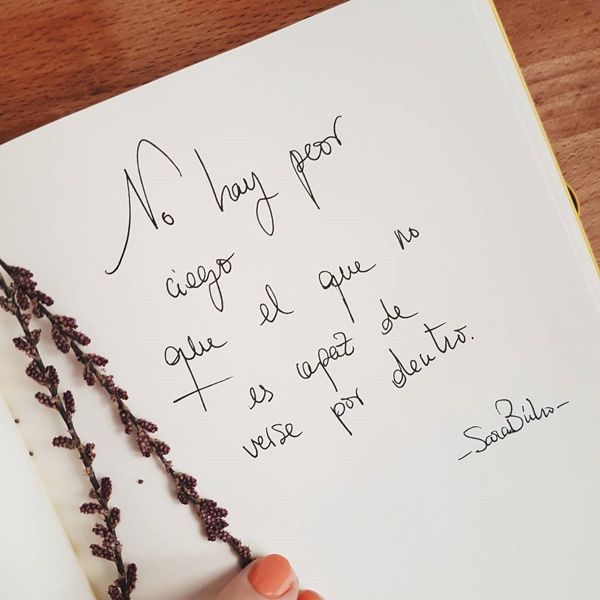 No hay peor
ciego
que el que no
es capaz de
verse por dentro.
-Sara Búho-